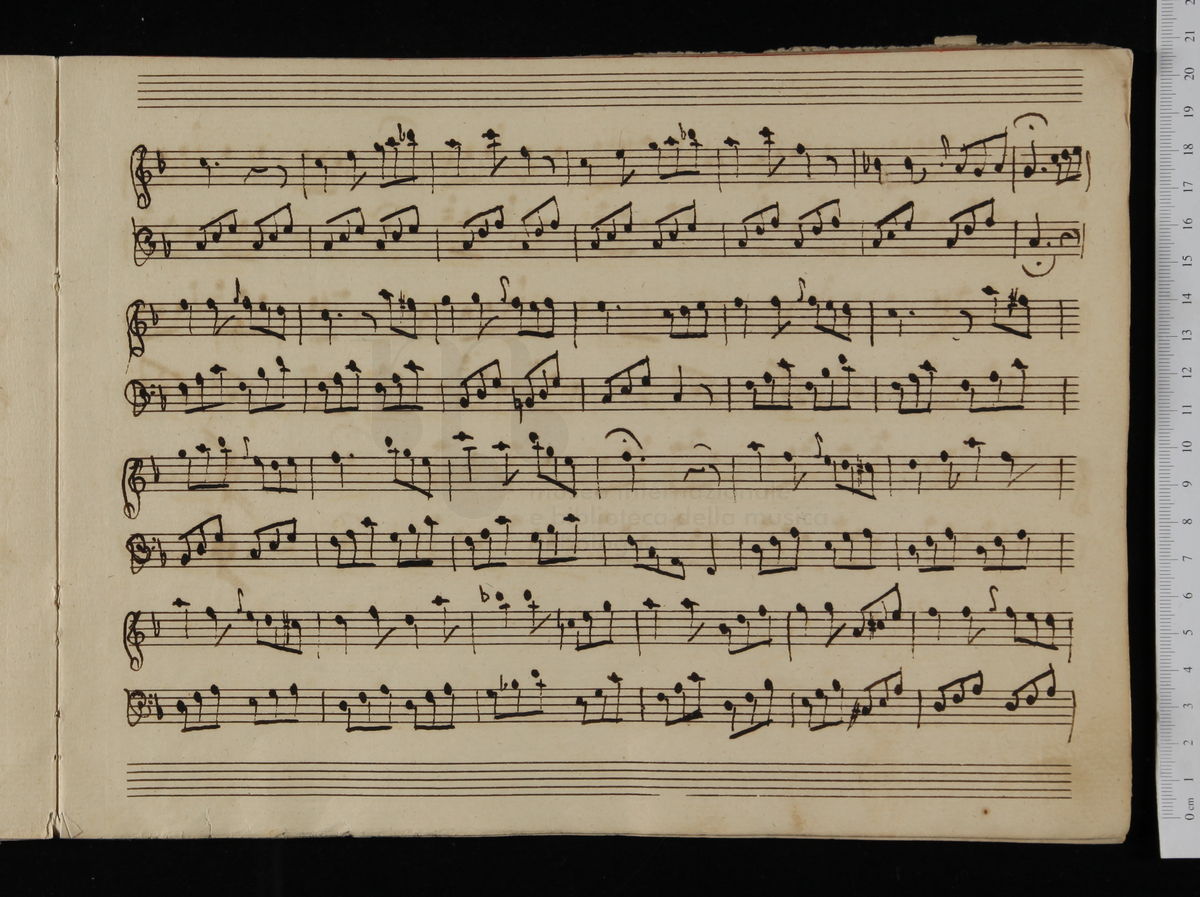 museo internazionale
e biblioteca della musica
21
20
19
18
17
16
15
14
13
12
11
10
9
8
7
6
5
4
3
2
1
0 cm